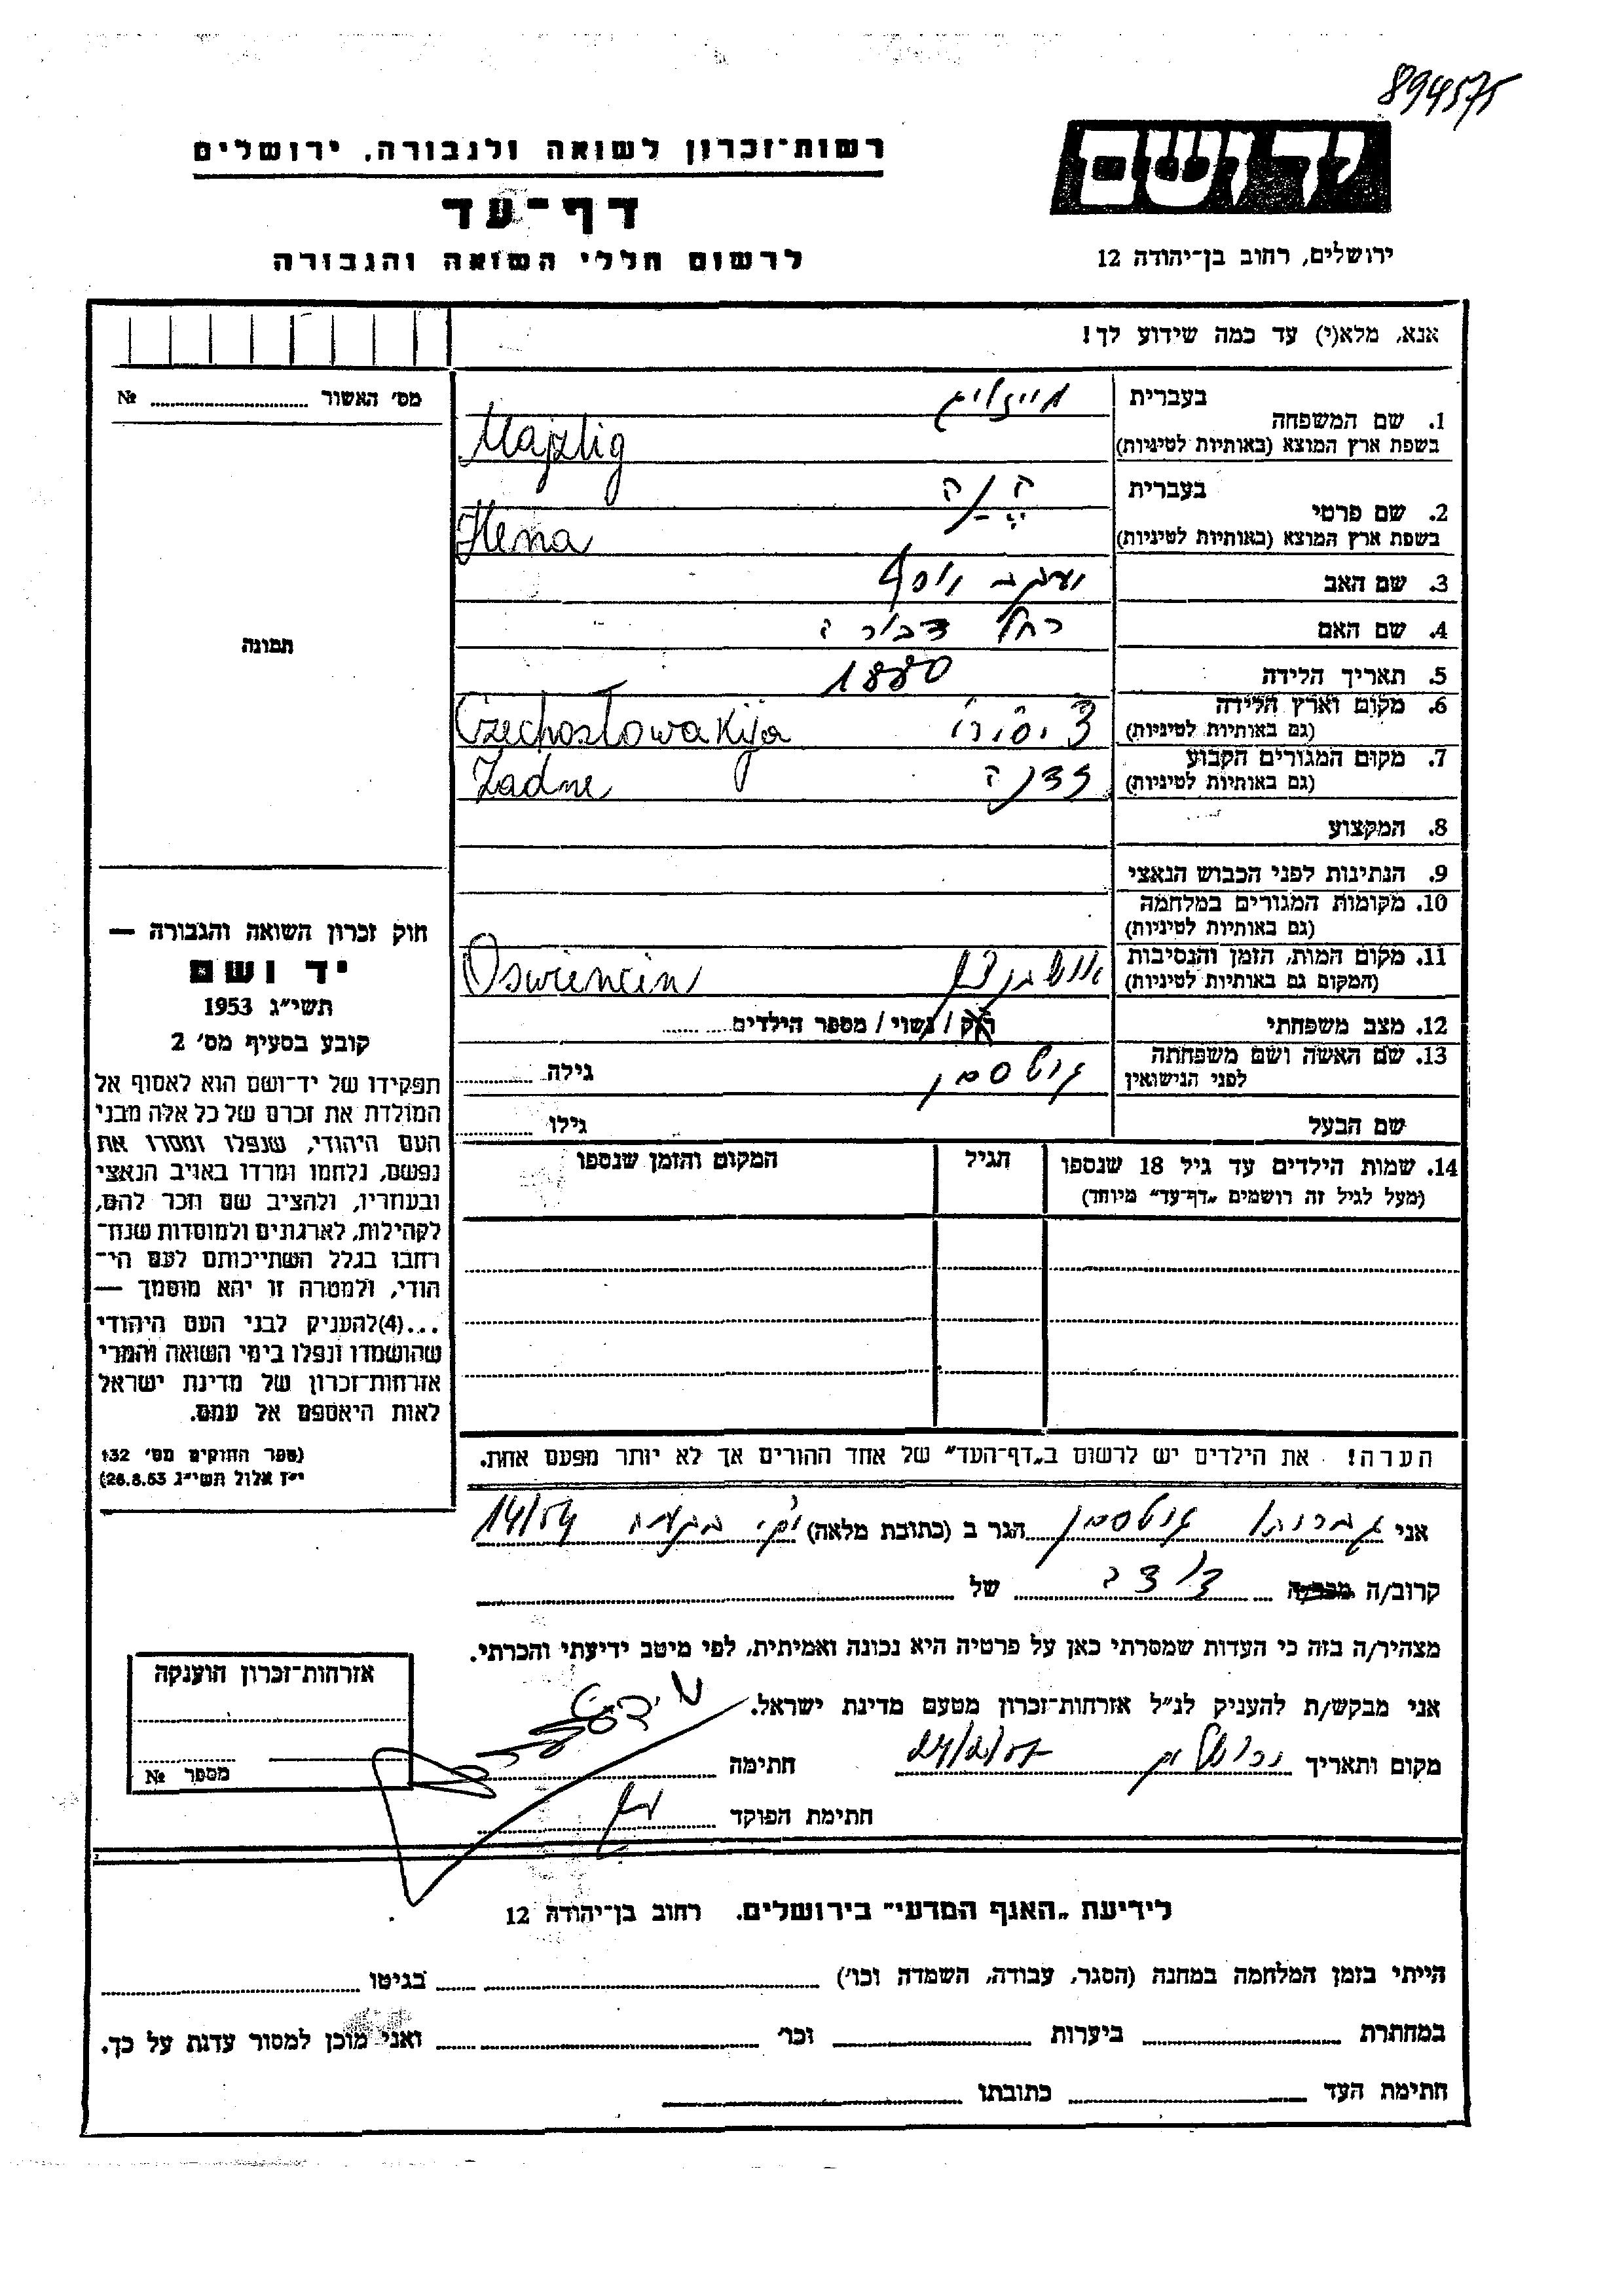 894575
רשות-זכרון לשואה ולגבורה, ירושלים
יד ושם
דף-עד
ירושלים, רחוב בן-יהודה 12
לרשום חללי השואה והגבורה
אנא, מלא(י) עד כמה שידוע לך!
מס' האשור № 
1. שם המשפחה
בעברית מייזליג
בשפת ארץ המוצא (באותיות לטיניות) Majzlig
2. שם פרטי
בעברית הינה
בשפת ארץ המוצא (באותיות לטיניות) Hena
3. שם האב יעקב יוסף
4. שם האם רחל דבורה
תמונה
5. תאריך הלידה 1880
6. מקום וארץ הלידה
(גם באותיות לטיניות) Czechosłowakija
7. מקום המגורים הקבוע
(גם באותיות לטיניות) זדניה Zadne
8. המקצוע
9. הנתינות לפני הכבוש הנאצי
10. מקומות המגורים במלחמה
(גם באותיות לטיניות)
11. מקום המות, הזמן והנסיבות
(המקום גם באותיות לטיניות) אושבנצין Oswiencin
12. מצב משפחתי רוק / נשוי / מספר הילדים
13. שם האשה ושם משפחתה
לפני הנישואין גוטסמן גילה
שם הבעל גילו
14. שמות הילדים עד גיל 18 שנספו
(מעל לגיל זה רושמים "דף-עד" מיוחד)
הגיל
המקום והזמן שנספו
חוק זכרון השואה והגבורה —
יד ושם
תשי"ג 1953
קובע בסעיף מס' 2
תפקידו של יד-ושם הוא לאסוף אל
המולדת את זכרם של כל אלה מבני
העם היהודי, שנפלו ומסרו את
נפשם, נלחמו ומרדו באויב הנאצי
ובעוזריו, ולהציב שם וזכר להם,
לקהילות, לארגונים ולמוסדות שנח-
רבו בגלל השתייכותם לעם הי-
הודי, ולמטרה זו יהא מוסמך —
...(4)להעניק לבני העם היהודי
שהושמדו ונפלו בימי השואה והמרי
אזרחות-זכרון של מדינת ישראל
לאות היאספם אל עמם.
(ספר החוקים מס' 132
י"ז אלול תשי"ג 28.8.53)
הערה! את הילדים יש לרשום ב"דף-העד" של אחד ההורים אך לא יותר מפעם אחת.
אני גוטסמן הגר ב (כתובת מלאה) 14/54
קרוב/ה מכר/ה של
מצהיר/ה בזה כי העדות שמסרתי כאן על פרטיה היא נכונה ואמיתית, לפי מיטב ידיעתי והכרתי.
אני מבקש/ת להעניק לנ"ל אזרחות-זכרון מטעם מדינת ישראל.
מקום ותאריך ירושלים חתימה
חתימת הפוקד
אזרחות-זכרון הוענקה
מספר №
לידיעת "האגף המדעי" בירושלים. רחוב בן-יהודה 12
הייתי בזמן המלחמה במחנה (הסגר, עבודה, השמדה וכו') בגיטו
במחתרת ביערות וכו' ואני מוכן למסור עדות על כך.
חתימת העד כתובתו